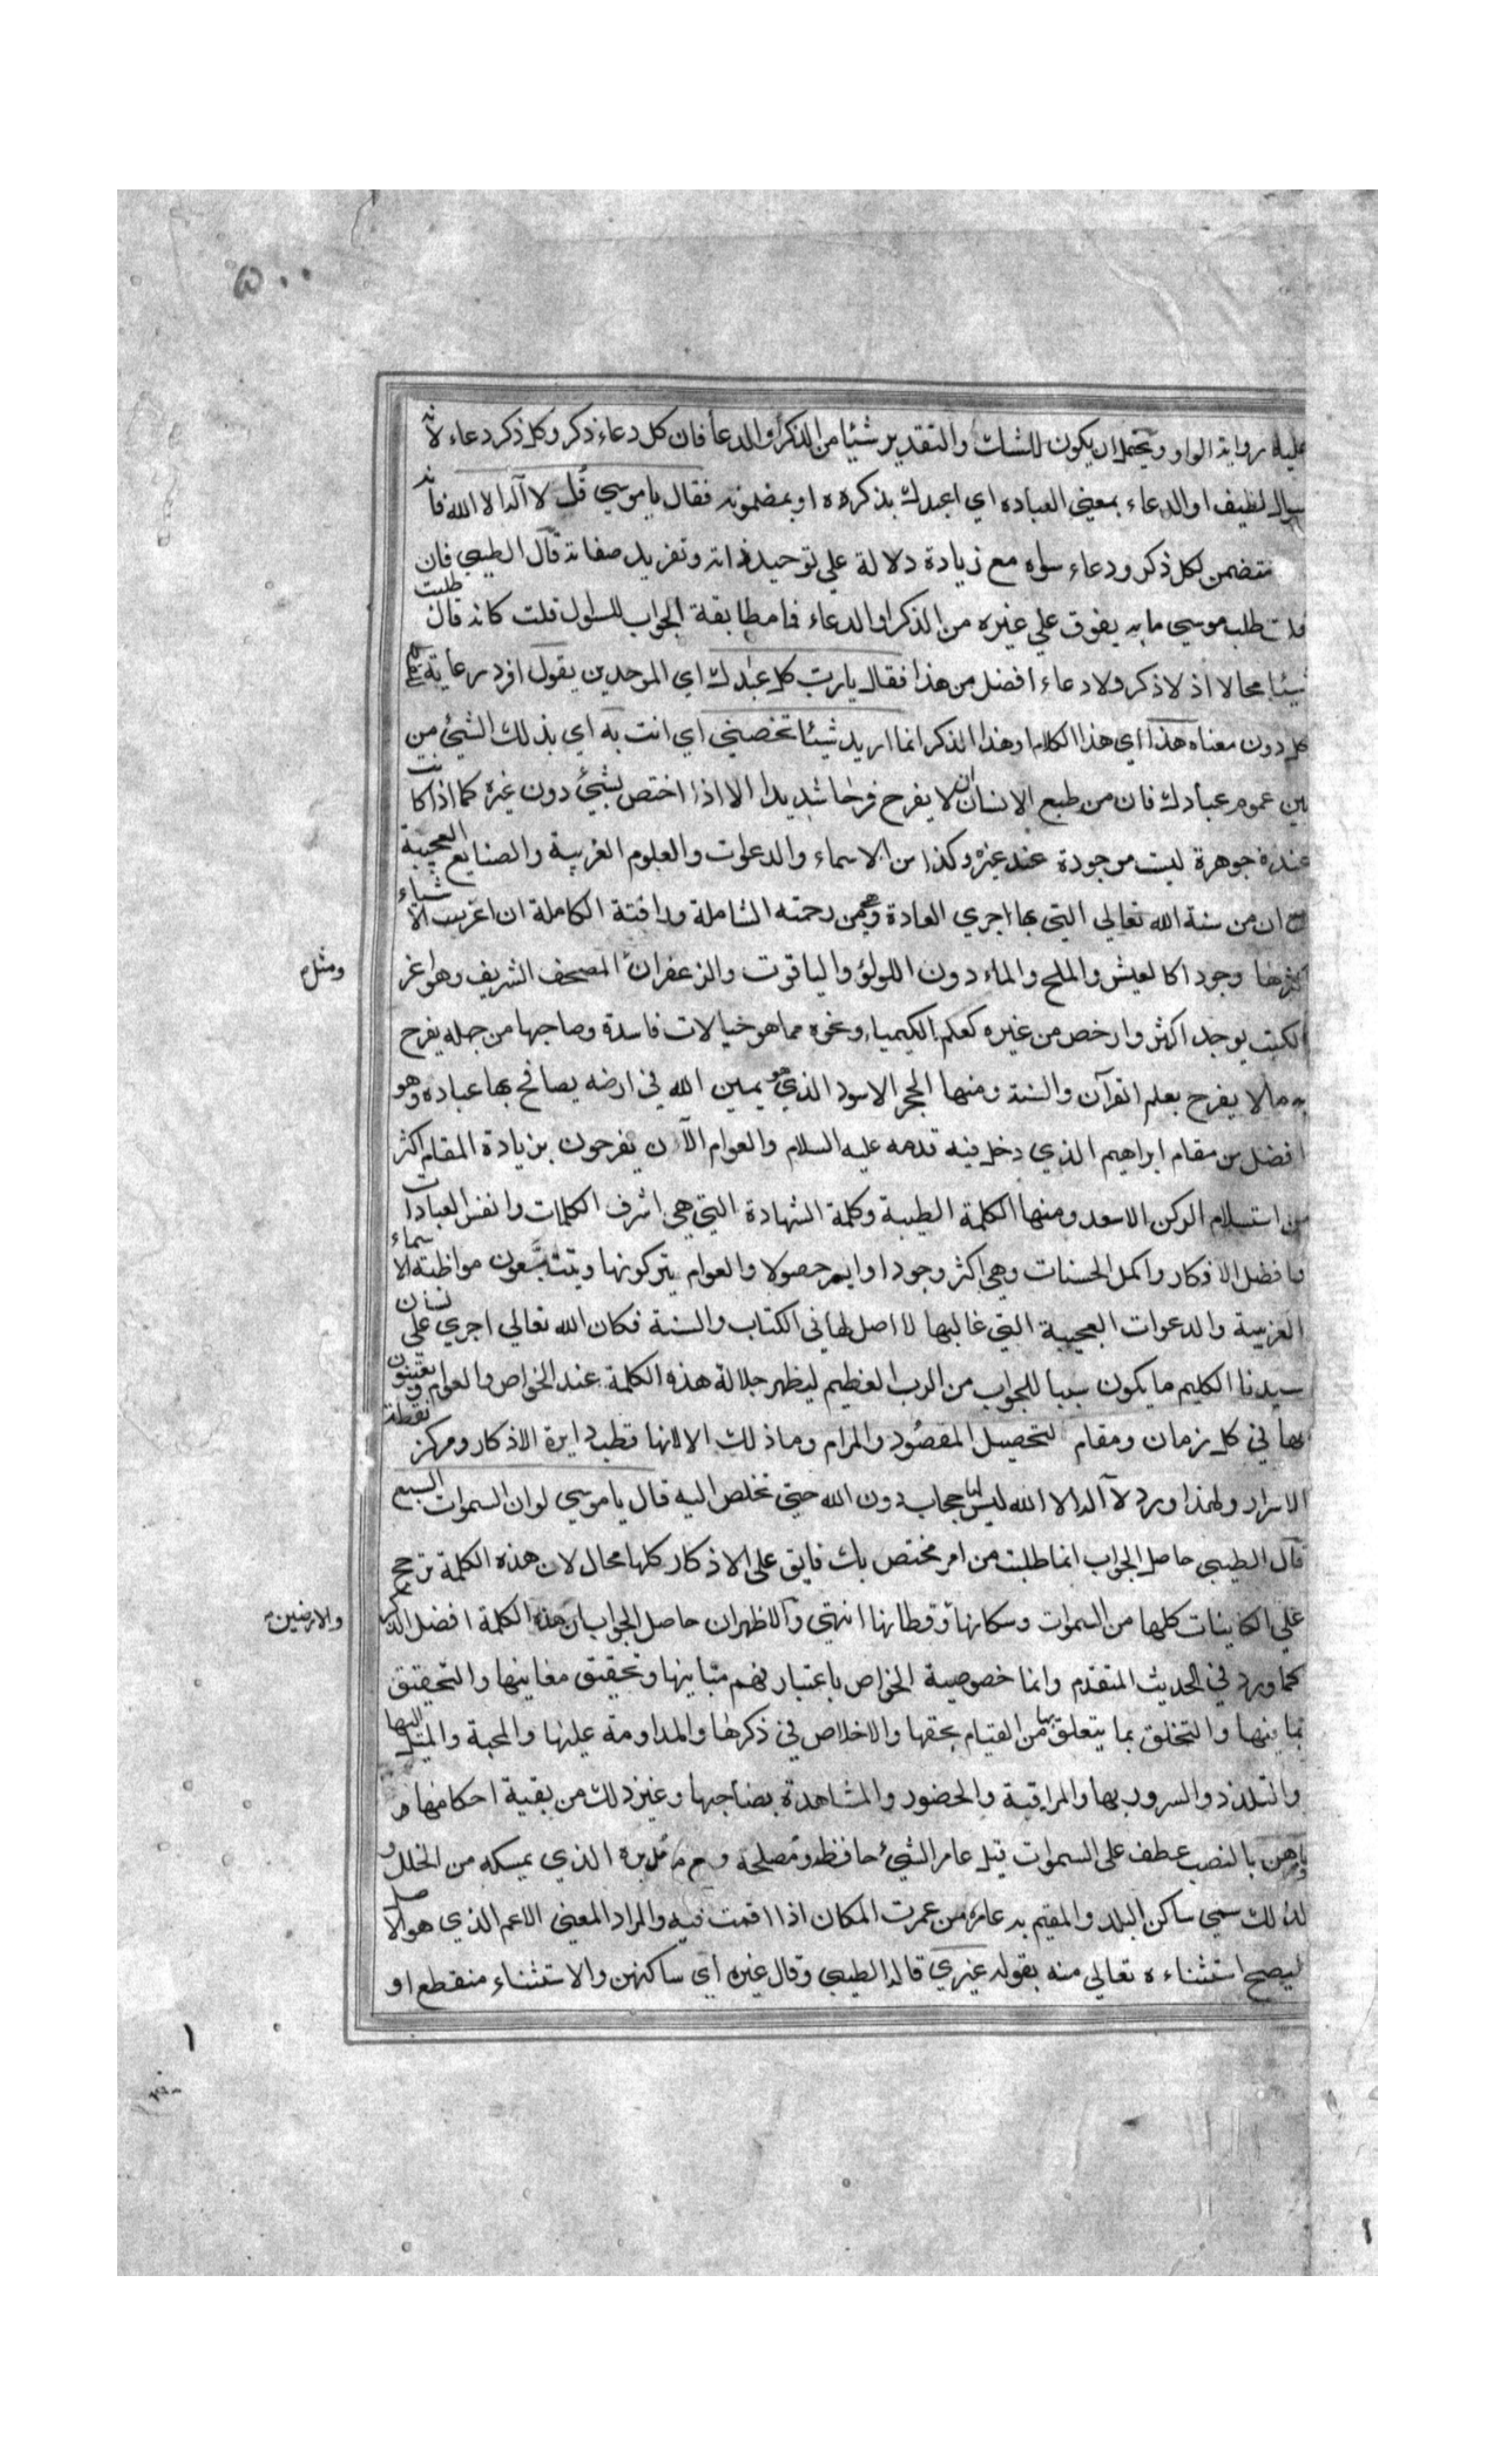 ٥٠٠
عليه رواية الواو ويحتمل ان يكون للشك والتقدير شيئا من الذكر أو الدعأ فان كل دعاء ذكر وكل ذكر دعاء لانه
سوال لطيف او الدعاء بمعنى العباده اي اعبدك بذكره ه او بمضمونه فقال يا موسي قل لا آله الا الله فانه
متضمن لكل ذكر ودعاء سواه مع زيادة دلالة علي توحيد ذاته وتفريد صفاته قال الطيبي فان
قلت طلب موسي ما به يفوق علي غيره من الذكر او الدعاء فما مطابقة الجواب للسؤل قلت كانه قال طلبت
شيئا محالا اذ لا ذكر ولا دعاء افضل من هذا فقال يا رب كل عبدك اي الموحدين يقول افرد رعاية للفظ
كل دون معناه هذا اي هذا الكلام او هذا الذكر انما اريد شيئا تخصني اي انت به اي بذلك الشيئ من
بين عموم عبادك فان من طبع الانسان ان لا يفرح فرحا شديدا الا اذا اختص بشيئ دون غيره كما اذا كانت
عنده جوهرة ليت موجودة عند غيره وكذا من الاسماء والدعوات والعلوم الغريبة والصنايع العجيبة
مع ان من سنة الله تعالي التي بها اجري العادة وهي من رحمته الشاملة ورافتة الكاملة ان اغرب الاشياء
اكثرها وجودا كالعيش والملح والماء دون اللولؤ والياقوت والزعفران المصحف الشريف وهو اعز
ومثل م
الكتب يوجد اكثر وارخص من غيره كعلم الكيمياء ونحوه مما هو خيالات فاسدة وصاحبها من جهله يفرح
به ما لا يفرح بعلم القرآن والسنة ومنها الحجر الاسود الذي هو يمين الله في ارضه يصافح بها عباده وهو
افضل من مقام ابراهيم الذي دخل فيه قدمه عليه السلام والعوام الآن يفرحون بزيادة المقام اكثر
من استلام الركن الاسعد ومنها الكلمة الطيبة وكلمة الشهادة التي هي اشرف الكلمات وانفس العبادات
وافضل الاذكار واكمل الحسنات وهي اكثر وجودا وايسر حصولا والعوام يتركونها ويتتبعون مواظبته الاسماء
الغريبة والدعوات العجيبة التي غالبها لا اصل لها في الكتاب والسنة فكان الله تعالي اجري علي لسان
سيدنا الكليم ما يكون سببا للجواب من الرب العظيم ليظهر جلالة هذه الكلمة عند الخواص والعوام ويعتنون
بها في كل زمان ومقام لتحصيل المقصود والمرام وما ذلك الا لانها قطب دايرة الاذكار ومركز نقطة
الاسرار ولهذا ورد لا آله الا الله ليس لها حجاب دون الله حتي تخلص اليه قال يا موسي لو ان السموات السبع
قال الطيبي حاصل الجواب انما طلبت من امر مختص بك فايق على الاذكار كلها محال لان هذه الكلمة ترجح
علي الكاينات كلها من السموات وسكانها وقطانها انتهي والاظهر ان حاصل الجواب ان هذه الكلمة افضل الذكر
والارضين م
كما ورد في الحديث المتقدم وانما خصوصية الخواص باعتبار فهم مبانيها وتحقيق معانيها والتحقيق
بما فيها والتخلق بما يتعلق بها من القيام بحقها والاخلاص في ذكرها والمداومة عليها والمحبة والميل اليها
والتلذذ والسرور بها والمراقبة والحضور والمشاهدة بصاحبها وغير ذلك من بقية احكامها و
عامرهن بالنصب عطف على السموات قيل عامر الشيئ حافظه ومصلحه ومدبره الذي يمسكه من الخلل و
لذلك سمي ساكن البلد والمقيم به عامره من عمرت المكان اذا اقمت فيه والمراد المعنى الاعم الذي هو الاصل
ليصح استثناءه تعالي منه بقوله غيري قاله الطيبي وقال غيره اي ساكنهن والاستثناء منقطع او